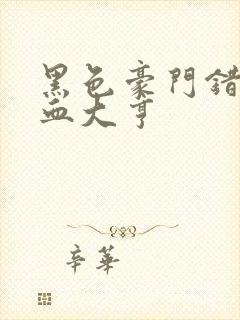 黑色豪門錯
血大亨
辛華